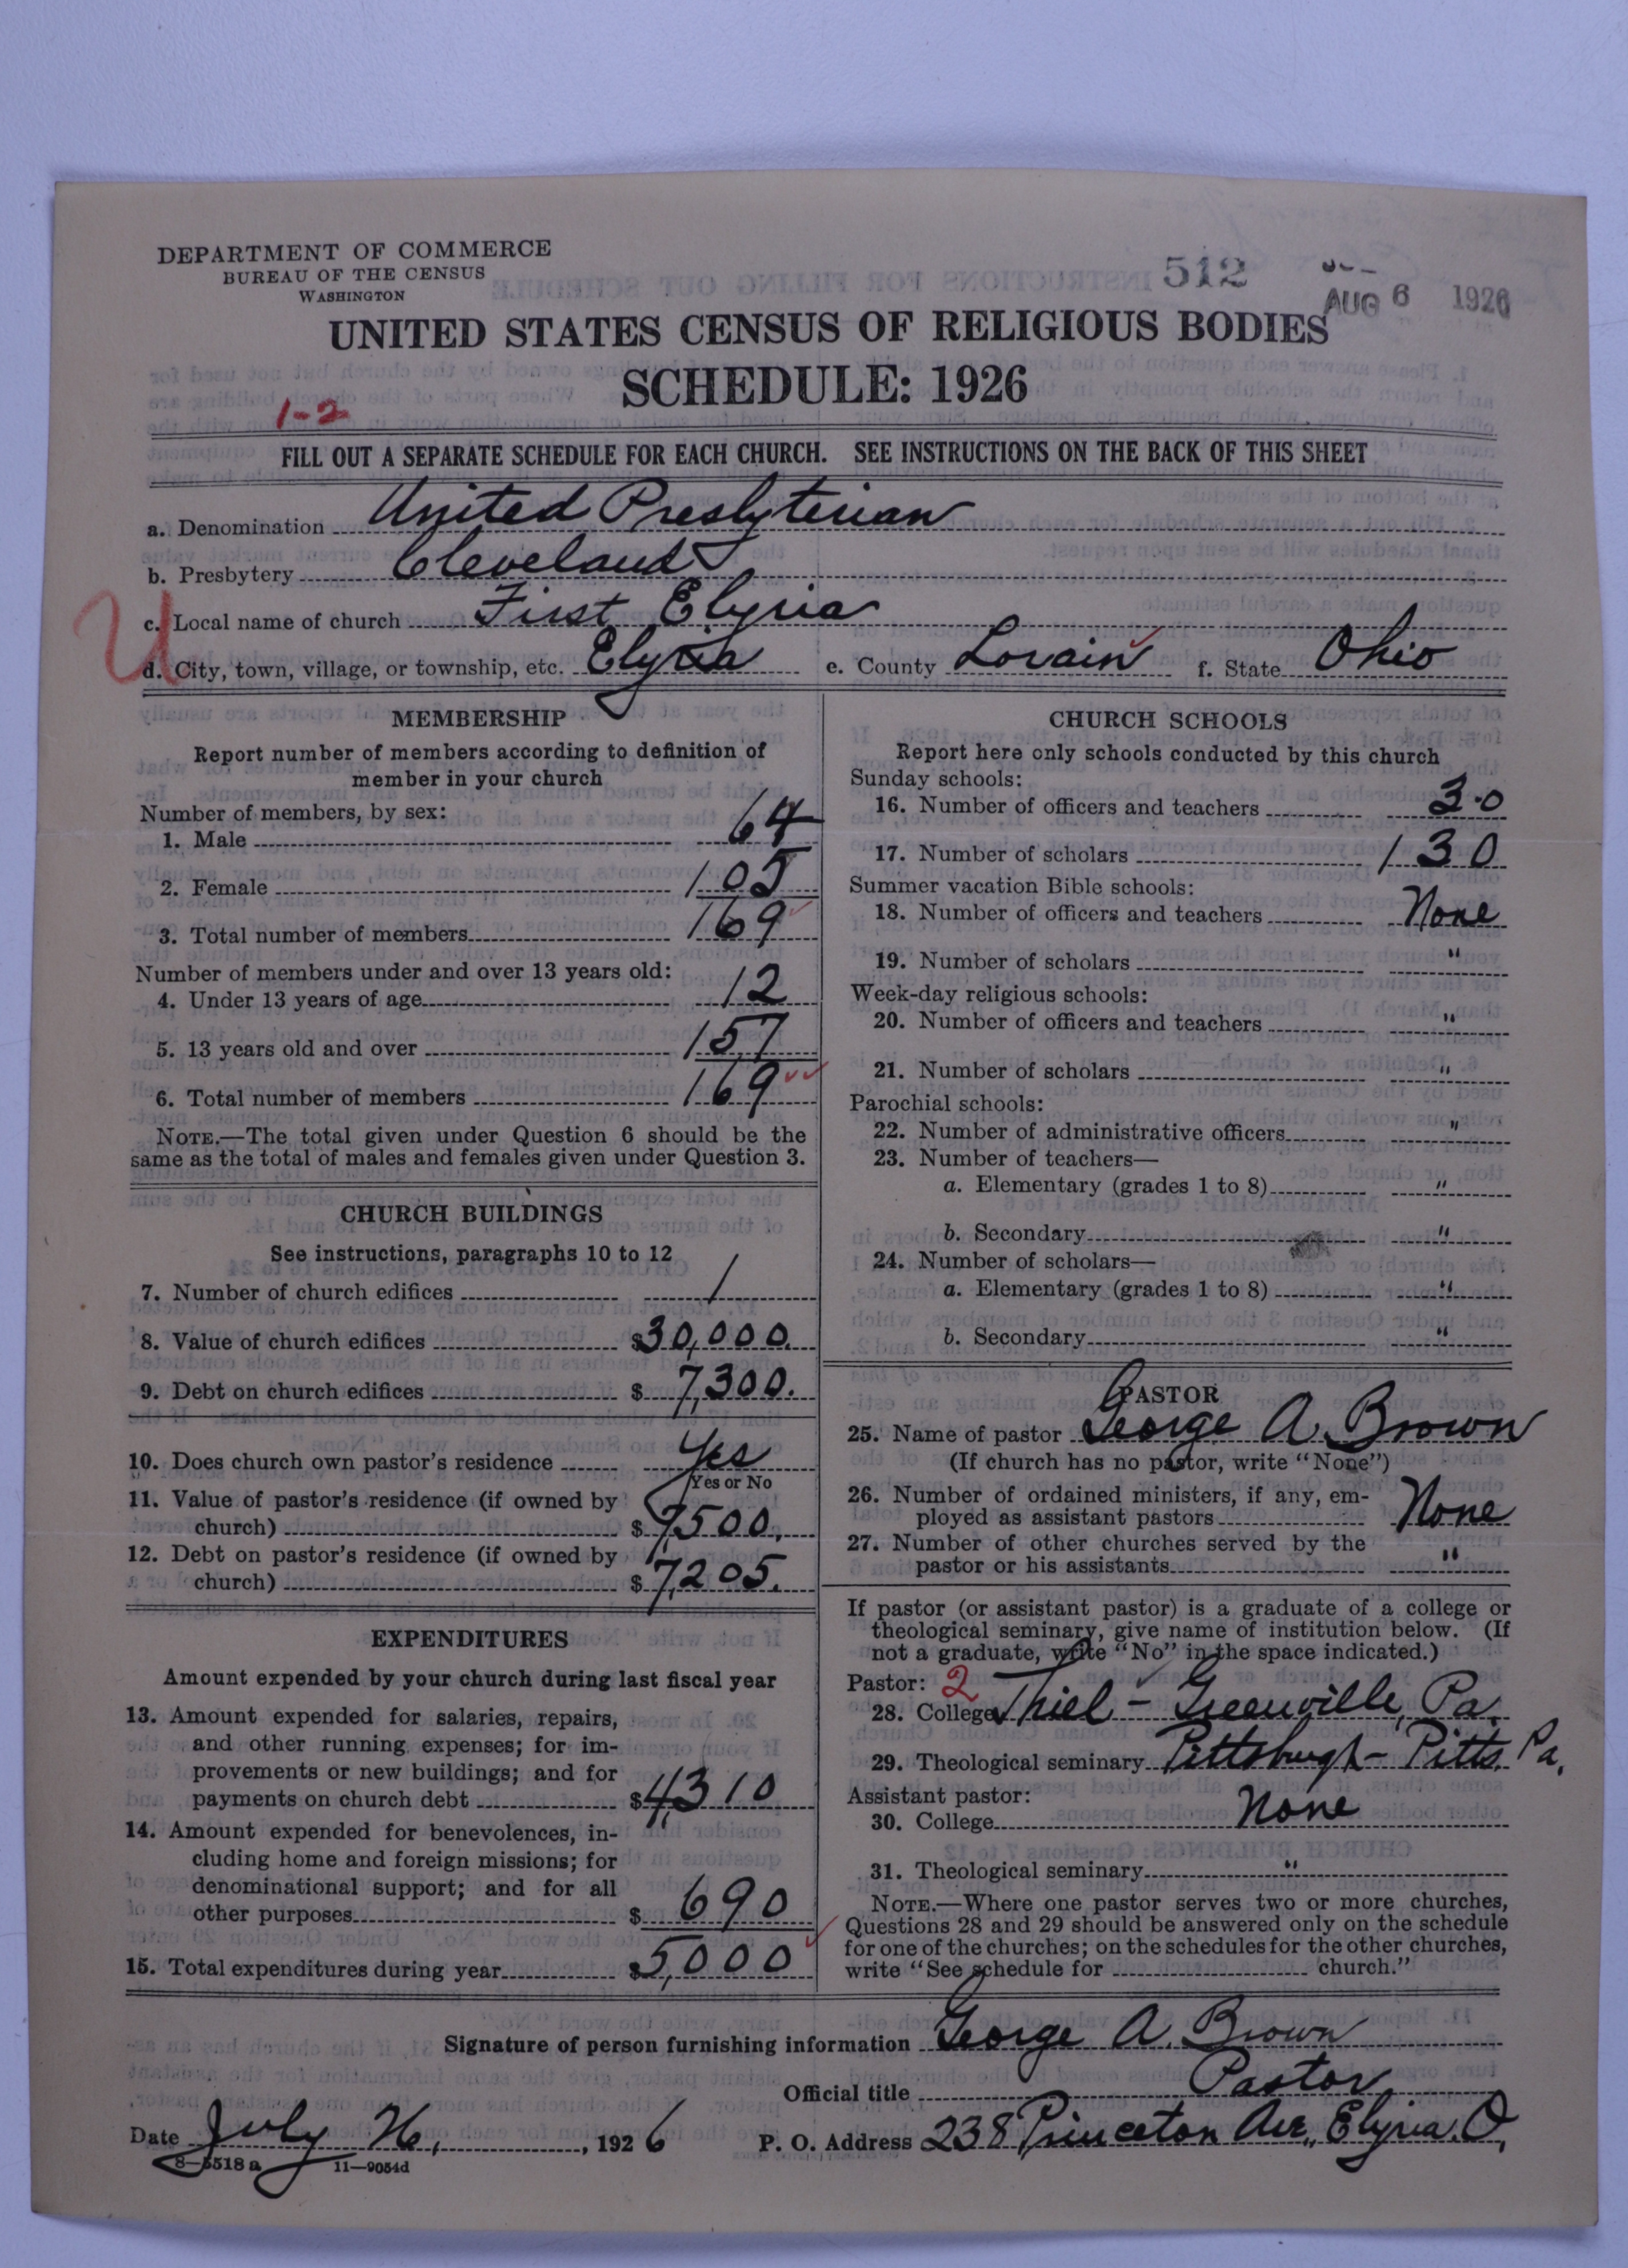 DEPARTMENT OF COMMERCE
BUREAU OF THE CENSUS
WASHINGTON
512
AUG 6 1926
UNITED STATES CENSUS OF RELIGIOUS BODIES
SCHEDULE: 1926
1-2
FILL OUT A SEPARATE SCHEDULE FOR EACH CHURCH. SEE INSTRUCTIONS ON THE BACK OF THIS SHEET
a. Denomination United Presbyterian
b. Presbytery Cleveland
U
c. Local name of church First Elyria
d. City, town, village, or township, etc. Elyria e. County Lorain f. State Ohio
MEMBERSHIP
Report number of members according to definition of
member in your church
Number of members, by sex:
1. Male 64
2. Female 105
3. Total number of members 169
Number of members under and over 13 years old:
4. Under 13 years of age 12
5. 13 years old and over 157
6. Total number of members 169
NOTE.—The total given under Question 6 should be the
same as the total of males and females given under Question 3.
CHURCH BUILDINGS
See instructions, paragraphs 10 to 12
7. Number of church edifices 1
8. Value of church edifices $30,000.
9. Debt on church edifices $ 7,300.
10. Does church own pastor's residence Yes
Yes or No
11. Value of pastor's residence (if owned by
church) $ 7500.
12. Debt on pastor's residence (if owned by
church) $ 7,205.
EXPENDITURES
Amount expended by your church during last fiscal year
13. Amount expended for salaries, repairs,
and other running expenses; for im-
provements or new buildings; and for
payments on church debt $4,310
14. Amount expended for benevolences, in-
cluding home and foreign missions; for
denominational support; and for all
other purposes $ 690
15. Total expenditures during year $5,000
CHURCH SCHOOLS
Report here only schools conducted by this church
Sunday schools:
16. Number of officers and teachers 30
17. Number of scholars 130
Summer vacation Bible schools:
18. Number of officers and teachers None
19. Number of scholars "
Week-day religious schools:
20. Number of officers and teachers "
21. Number of scholars "
Parochial schools:
22. Number of administrative officers "
23. Number of teachers—
a. Elementary (grades 1 to 8) "
b. Secondary "
24. Number of scholars—
a. Elementary (grades 1 to 8) "
b. Secondary "
PASTOR
25. Name of pastor George A Brown
(If church has no pastor, write "None")
26. Number of ordained ministers, if any, em-
ployed as assistant pastors None
27. Number of other churches served by the
pastor or his assistants "
If pastor (or assistant pastor) is a graduate of a college or
theological seminary, give name of institution below. (If
not a graduate, write "No" in the space indicated.)
Pastor: 2
28. College Thiel - Greenville, Pa.
29. Theological seminary Pittsburgh - Pitts. Pa.
Assistant pastor:
30. College None
31. Theological seminary "
NOTE.—Where one pastor serves two or more churches,
Questions 28 and 29 should be answered only on the schedule
for one of the churches; on the schedules for the other churches,
write "See schedule for church."
Signature of person furnishing information George A. Brown
Official title Pastor
Date July 26, 1926 P. O. Address 238 Princeton Ave., Elyria. O,
8—5518 a 11—9054d